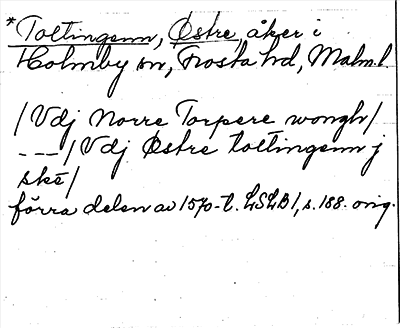 *Toltingenn, Østre, åker i
Holmby sn, Frosta hd, Malm.l
/Vdj Norre Torpere wongh/
---/Vdj Østre toltingenn j
ske/
förra delen av 1570-t. LSLB 1, s. 188. orig.